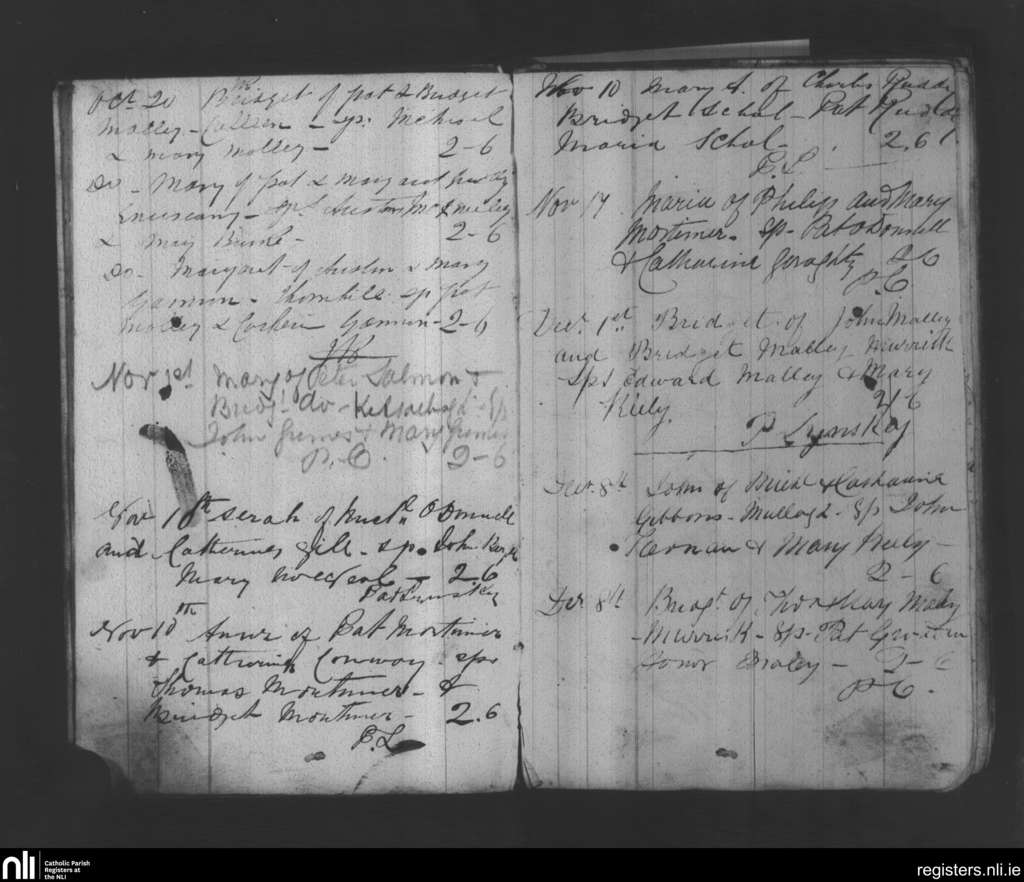 Oct 20 Bridget of Pat & Bridget
Malley - Cullen - sps Michael
& Mary Malley - 2-6
Do - Mary of Pat & Margaret
- sps Austin
& Mary Burke - 2-6
Do - Margaret of Austin & Mary
Gannon - Thornhill sp Pat
Malley & Gannon - 2-6
Nov 1st Mary of Peter Salmon &
Bridgt do - Sp
John Grimes & Mary Grimes
P. C. 2-6
Nov 10th Serah of O Donnell
and Catherine Gill - sp. John
Mary - 2.6
Pat Lynskey
Nov 10th Anne of Pat Mortimer
& Catherine Conway sps
Thomas Mortimer - &
Bridget Mortimer - 2.6
P. L
Nov 10 Mary A. of Charles Ruddy
Bridget Schal - Pat Ruddy
Maria Schal - 2.6
P. L
Nov 17 Maria of Philip and Mary
Mortimer - sp - Pat O Donnell
& Catharine Geraghty 2 6
P. C
Decr 1st Bridget of John Malley
and Bridget Malley Murrisk
Sps Edward Malley & Mary
Kiely. 2/6
P Lynskey
Decr 8th John of & Catharine
Gibbons - - Sp John
Kernan & Mary Kiely -
2-6
Decr 8th Bridgt of Thos & Mary
Murrisk - Sps - Pat
Honor - 2-6
P. C.
nli
Catholic Parish
Registers at
the NLI
registers.nli.ie